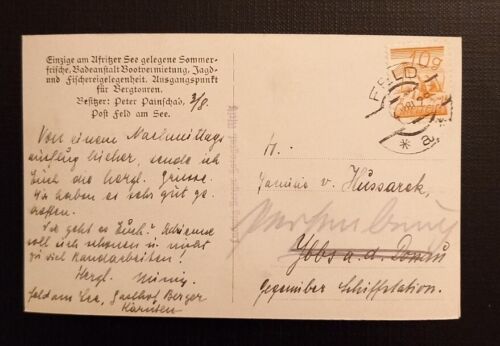 Einzige am Afritzer See gelegene Sommer-
frische. Badeanstalt Bootvermietung, Jagd-
und Fischereigelegenheit. Ausgangspunkt
für Bergtouren.
Besitzer: Peter Painschab. 3/8.
Post Feld am See.
Von einem Nachmittags
ausflug hieher, sende ich
Euch die herzl. Grüsse.
Wir haben es sehr gut ge-
troffen.
Wie geht es Euch? Adrienne
soll sich schonen u. nicht
zu viel Handarbeiten!
Herzl.
Feld am See, Gasthof Berger
Kärnten
10g
FELD
a
v. Hussarek,
Persenbeug
Ybbs a. d. Donau
gegenüber Schiffstation.